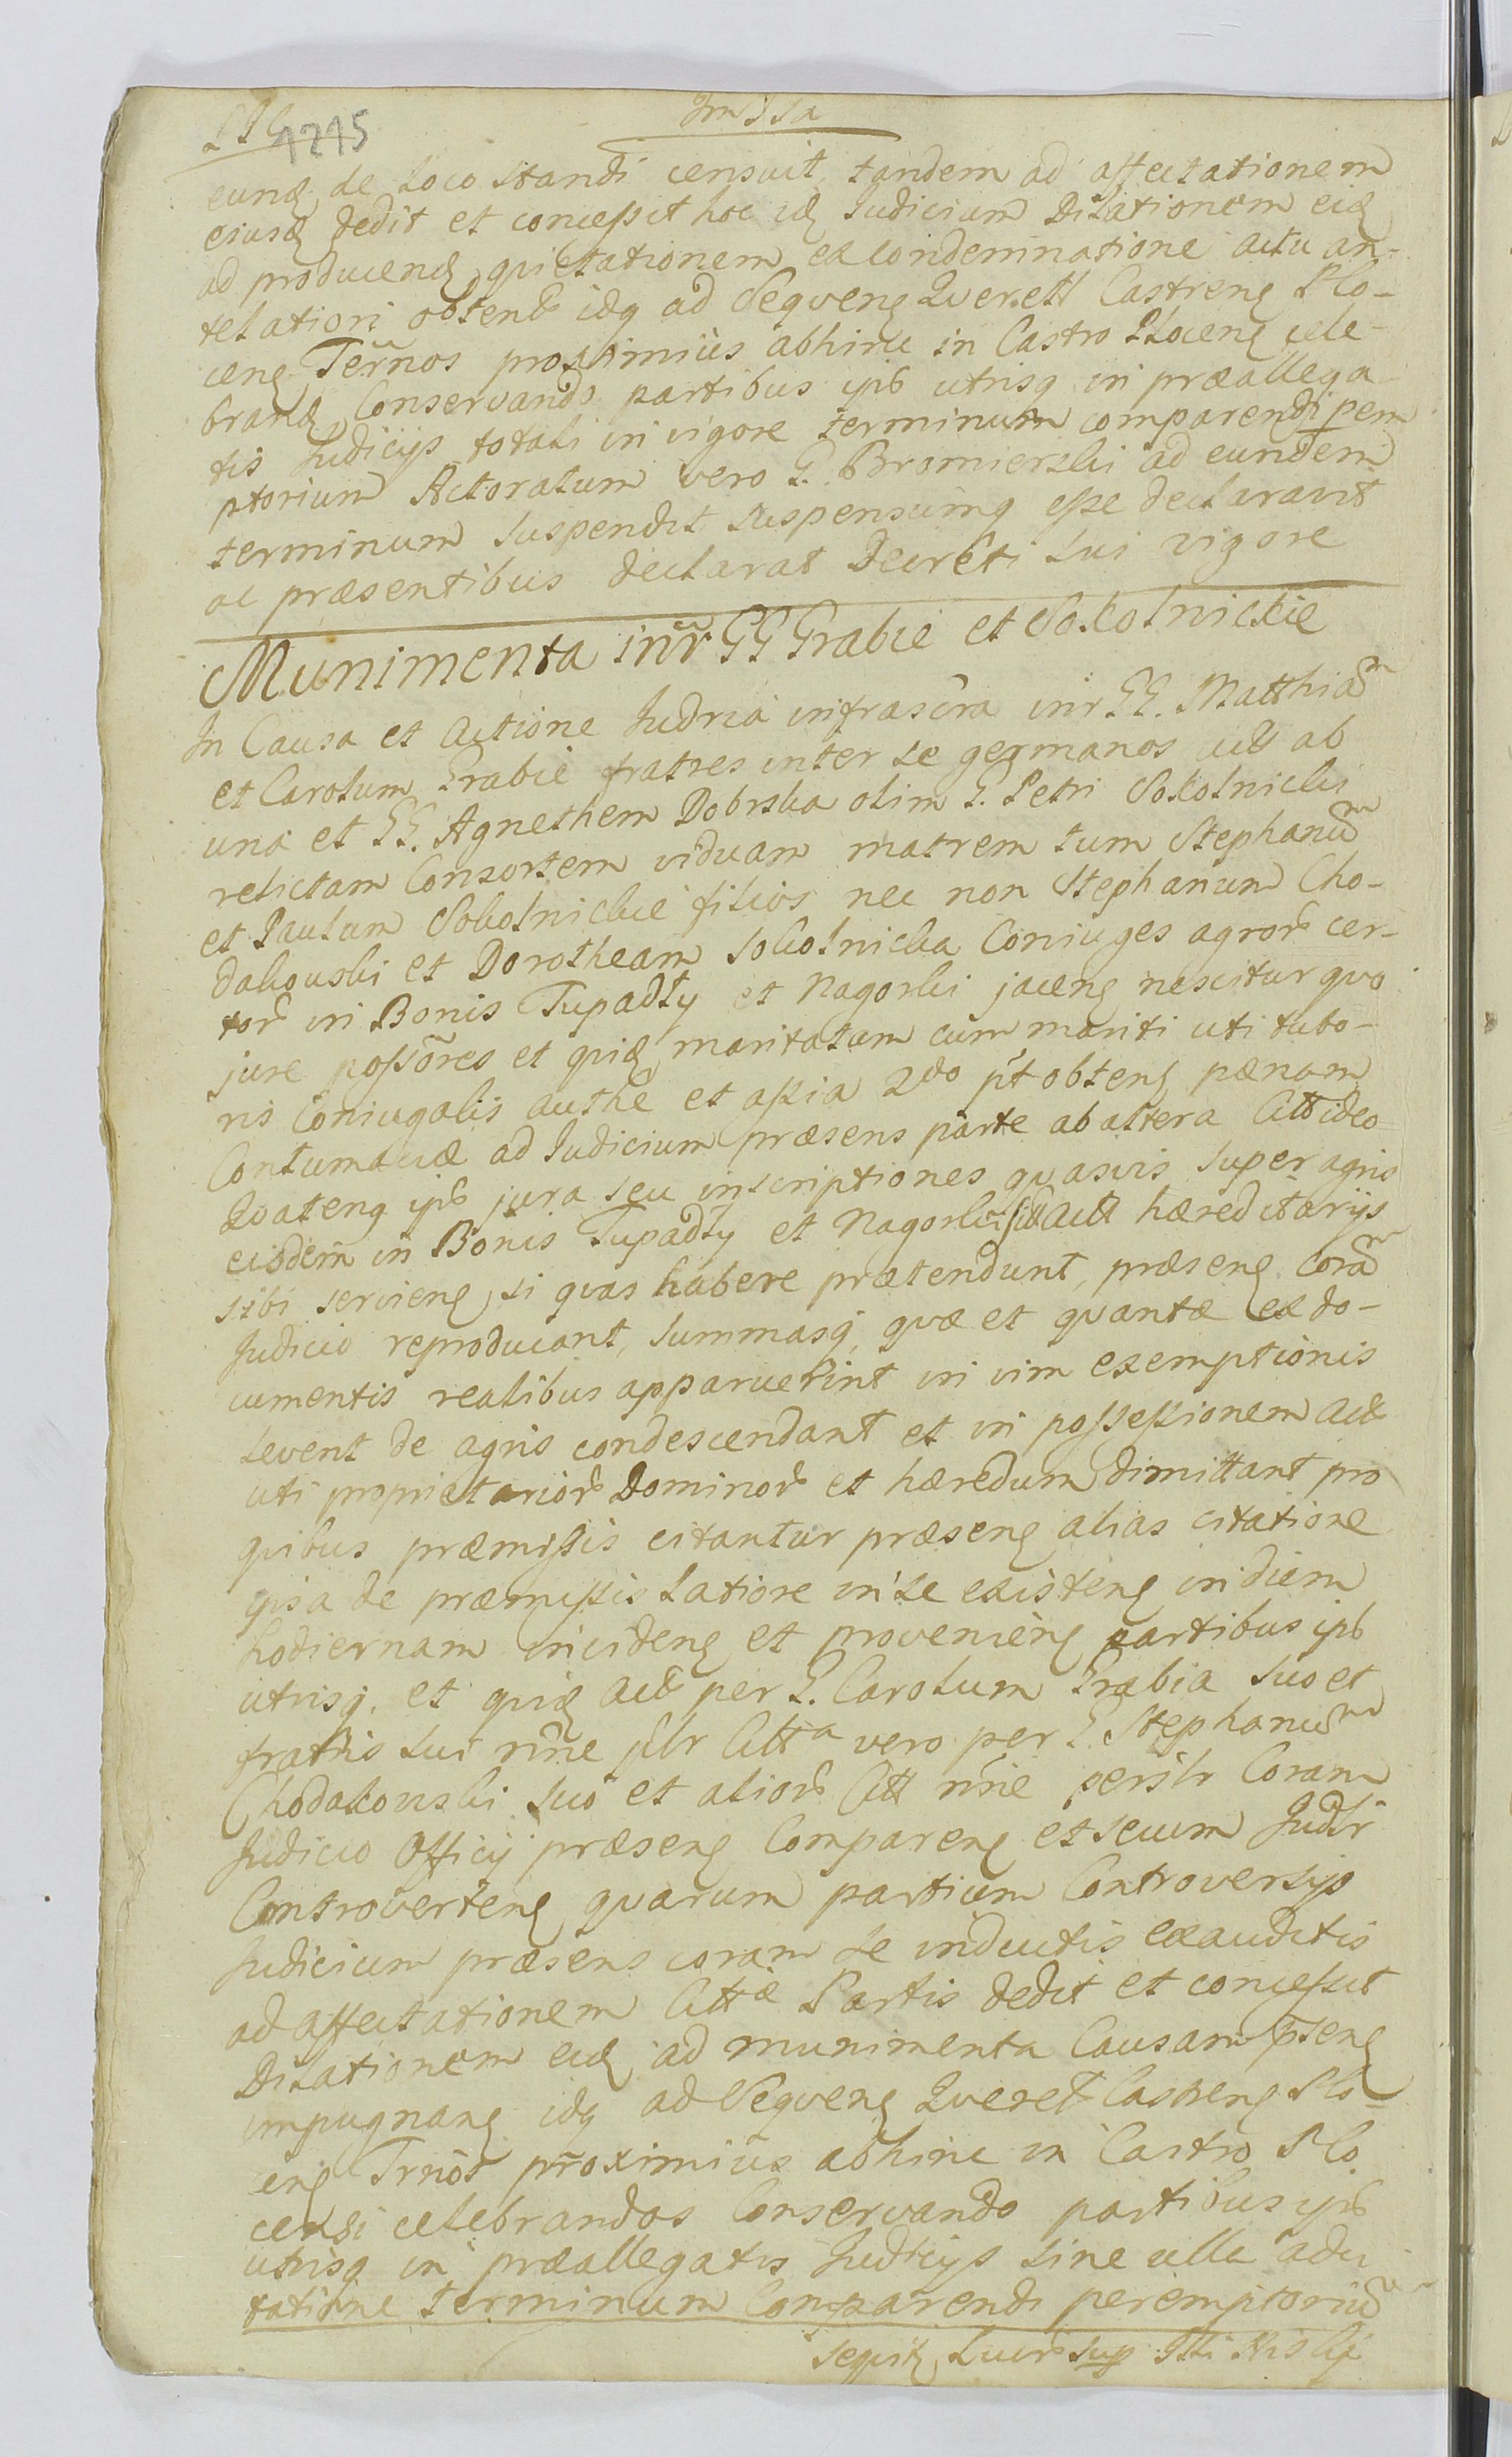 1215
eunq de Loco standi censuit, tandem ad affectationem
eiusq dedit et concessit hoc idq Judicium Dilationem eidq
ad producenq quietationem ex condemnatione actu an-
telatiori obtent idq ad Seqveng Qverell Castreng Plo-
ceng Termos proximius abhinc in Castro Ploceng cele-
brandq Conservando partibus ipb utrisq in præallega-
tis Judicijs totali in vigore terminum comparendi perem
ptorium Actoratum vero G. Bromierski ad eundem
terminum suspendit suspensumq esse declaravit
ac præsentibus declarat Decreti sui vigore
Munimenta intr GG Grabie et Sokolnickie
In Causa et Actione Judria infrascra intr GG. Matthiam
et Carolum Grabie fratres inter se germanos act ab
una et GG. Agnethem Dobrska olim G. Petri Sokolnicki
relictam Consortem viduam matrem tum Stephanum
et Paulum Sokolnickie filios nec non Stephanum Cho-
dakowski et Dorotheam Sokolnicka Coniuges agror cer-
tor in Bonis Tupadły et Nagorki jaceng nescitur quo
jure possores et quidq maritatam cum mariti uti tuto-
ris Coniugalis authe et assia 2do pt obteng pænam
Contumaciæ ad Judicium præsens parte ab altera Citt ideo
Qvateng ipb jura seu inscriptiones quasvis super agris
eisdem in Bonis Tupadły et Nagorki sitt Actt hæreditarijs
sibi servieng, si qvas habere prætendunt, præseng coram
Judicio reproducant, summasq, quæ et quantæ ex do-
cumentis realibus apparuerint in vim exemptionis
levent de agris condescendant et in possessionem Act
uti proprietarior Dominor et hæredum dimittant pro
quibus præmissis citantur præseng alias citatione
ipsa de præmissis latiore in se existeng in diem
hodiernam incideng et provenieng partibus ipb
utrisq, et quidq Act per G. Carolum Grabia suo et
fratris sui nne plr Citta vero per G. Stephanum
Chodakowski suo et alior Citt nne persltr Coram
Judicio Officij præseng Compareng et secum Judltr
Controverteng, quarum partium Controversijs
Judicium præsens coram se inductis exauditis
ad affectationem Cittæ Partis dedit et concessit
Dilationem eidq ad munimenta Causam pseng
impugnang idq ad Seqveng Qverel Castreng Plo-
ceng Trnos proximius abhinc in Castro Plo
censi celebrandos Conservando partibus ipb
utrisq in præallegatis Judicijs sine ulla adci
tatione terminum Comparendi peremptorium